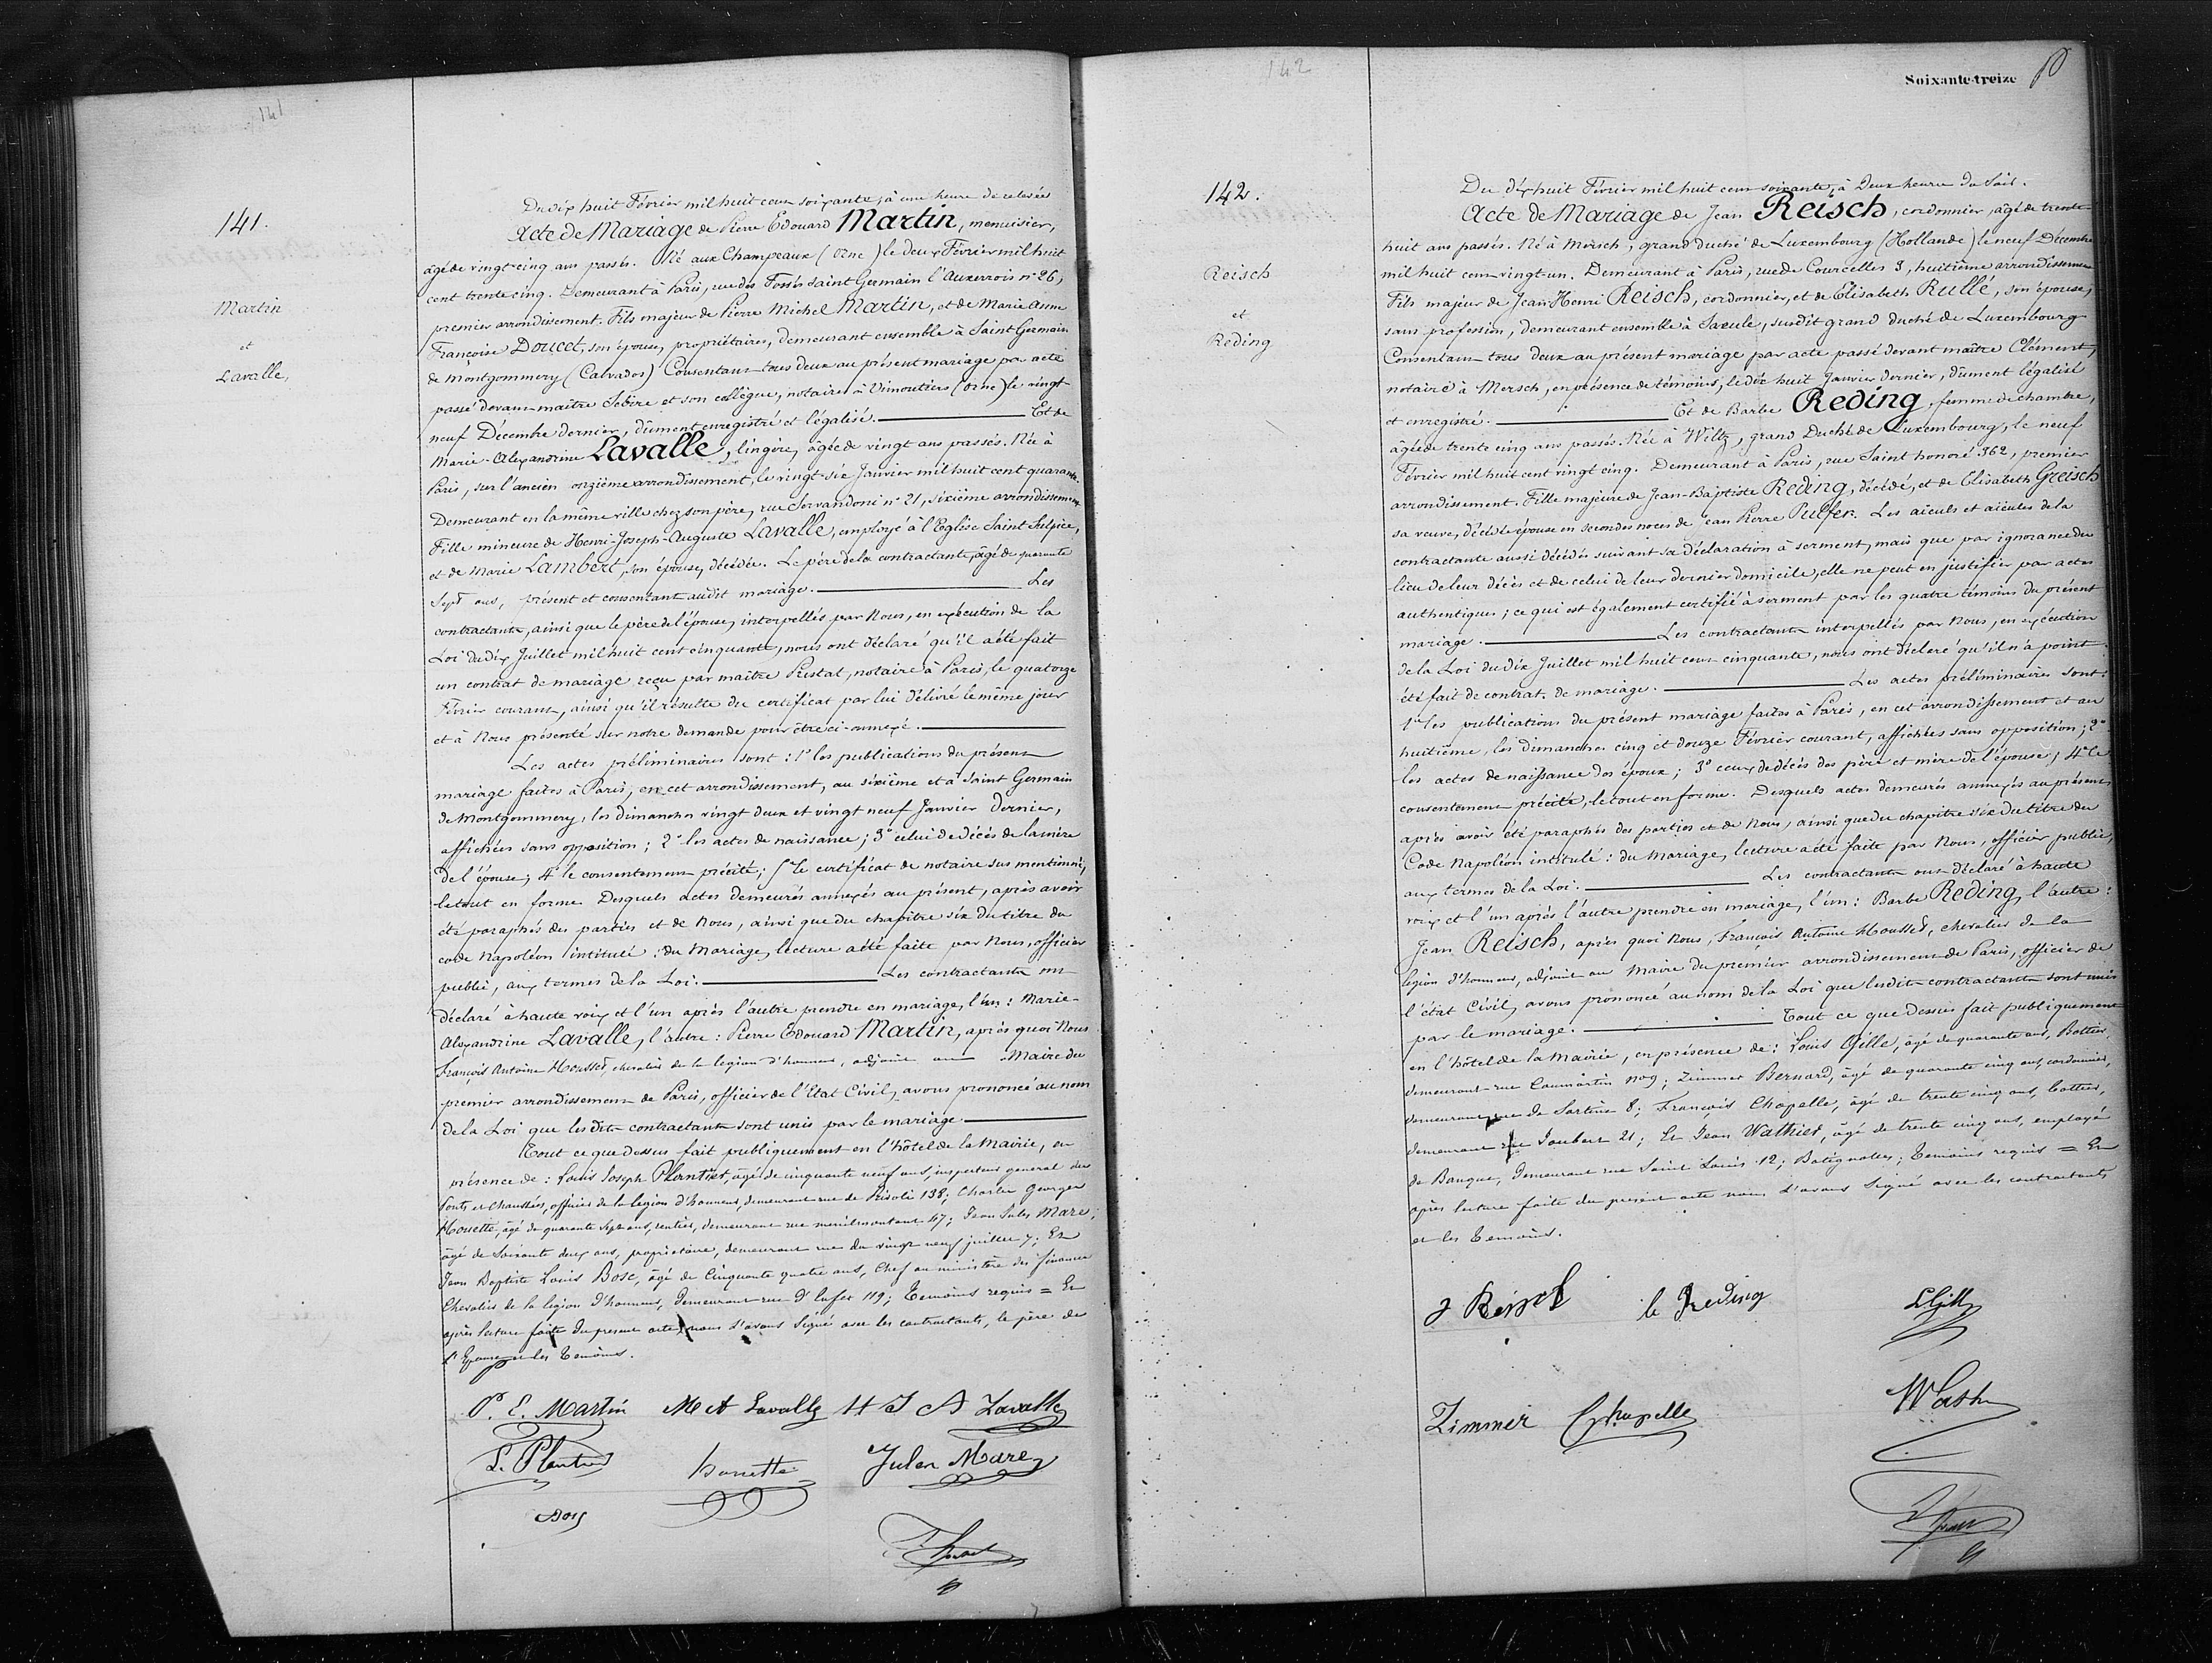 141
141.
Martin
et
Lavalle,
Du dix huit Février mil huit cent soixante, à une heure de relevée
Acte de Mariage de Pierre Edouard Martin, menuisier,
âgé de vingt-cinq ans passés. Né aux Champeaux (Orne) le deux Février mil huit
cent trente cinq. Demeurant à Paris, rue des Fossés Saint Germain l'Auxerrois n° 26,
premier arrondissement. Fils majeur de Pierre Michel Martin, et de Marie Anne
Françoise Doucet, son épouse, propriétaires, demeurant ensemble à Saint Germain
de Montgommery (Calvados) Consentant tous deux au présent mariage par acte
passé devant maître Sebire et son collègue, notaires à Vimoutiers (Orne) le vingt
neuf Décembre dernier, dûment enregistré et légalisé. Et de
Marie-Alexandrine Lavalle, lingère, âgée de vingt ans passés. Née à
Paris, sur l'ancien onzième arrondissement, le vingt-six Janvier mil huit cent quarante.
Demeurant en la même ville chez son père, rue Servandoni n° 21, sixième arrondissement
Fille mineure de Henri-Joseph-Auguste Lavalle, employé à l'Eglise Saint Sulpice,
et de Marie Lambert, son épouse, décédée. Le père de la contractante, âgé de quarante
sept ans, présent et consentant audit mariage. Les
contractants, ainsi que le père de l'épouse, interpellés par Nous, en exécution de la
Loi du dix Juillet mil huit cent cinquante, nous ont déclaré qu'il a été fait
un contrat de mariage reçu par maître Prestat, notaire à Paris, le quatorze
Février courant, ainsi qu'il résulte du certificat par lui délivré le même jour
et à Nous présenté sur notre demande pour être ci-annexé.
Les actes préliminaires sont : 1° les publications du présent
mariage faites à Paris, en cet arrondissement, au sixième et à Saint Germain
de Montgommery, les dimanches vingt deux et vingt neuf Janvier dernier,
affichées sans opposition ; 2° les actes de naissance ; 3° celui de décès de la mère
de l'épouse ; 4° le consentement précité ; 5° le certificat de notaire sus mentionné,
le tout en forme. Desquels actes demeurés annexés au présent, après avoir
été paraphés des parties et de Nous, ainsi que du chapitre six du titre du
code Napoléon intitulé : du Mariage, lecture a été faite par Nous, officier
public, aux termes de la Loi. Les contractants ont
déclaré à haute voix et l'un après l'autre prendre en mariage, l'un : Marie-
Alexandrine Lavalle, l'autre : Pierre Edouard Martin, après quoi Nous
François Antoine Housset, chevalier de la légion d'honneur, adjoint au Maire du
premier arrondissement de Paris, officier de l'Etat Civil, avons prononcé au nom
de la Loi que lesdits contractants sont unis par le mariage.
Tout ce que dessus fait publiquement en l'hôtel de la Mairie, en
présence de : Louis Joseph Plantier, âgé de cinquante neuf ans, inspecteur general des
Ponts et chaussées, officier de la légion d'honneur, demeurant rue de Rivoli 138 ; Charles Georges
Houette, âgé de quarante sept ans, rentier, demeurant rue menilmontant 47 ; Jean Jules Mare,
âgé de soixante deux ans, propriétaire, demeurant rue du vingt neuf juillet 7 ; Et
Jean Baptiste Louis Bosc, âgé de Cinquante quatre ans, Chef au ministère des finances
Chevalier de la légion d'honneur, demeurant rue d'Enfer 119 ; Temoins requis = Et
après lecture faite du present acte nous l'avons Signé avec les contractants, le père de
l'Epouse et les Temoins.
P. E. Martin M A Lavalle H J A Lavalle
L. Plantier houette Jules Mare
Bosc
142
Soixante-treize
142.
Reisch
et
Reding
Du dix huit Février mil huit cent soixante, à Deux heures du Soir.
Acte de Mariage de Jean Reisch, cordonnier, âgé de trente-
huit ans passés. Né à Mersch, grand duché de Luxembourg (Hollande) le neuf Décembre
mil huit cent vingt-un. Demeurant à Paris, rue de Courcelles 3, huitième arrondissement
Fils majeur de Jean-Henri Reisch, cordonnier, et de Élisabeth Rullé, son épouse,
sans profession, demeurant ensemble à Saeule, susdit grand duché de Luxembourg
Consentant tous deux au présent mariage par acte passé devant maître Clément,
notaire à Mersch, en présence de témoins, le dix huit Janvier dernier, dûment légalisé
et enregistré. Et de Barbe Reding, femme de chambre,
âgée de trente cinq ans passés. Née à Wiltz, grand Duché de Luxembourg, le neuf
Février mil huit cent vingt cinq. Demeurant à Paris, rue Saint honoré 362, premier
arrondissement. Fille majeure de Jean-Baptiste Reding, décédé, et de Elisabeth Greisch
sa veuve, décédée épouse en secondes noces de Jean Pierre Pulfer. Les aïeuls et aïeules de la
contractante aussi décédés suivant sa déclaration à serment, mais que par ignorance du
lieu de leur décès et de celui de leur dernier domicile, elle ne peut en justifier par actes
authentiques ; ce qui est également certifié à serment par les quatre témoins du présent
mariage. Les contractants interpellés par Nous, en exécution
de la Loi du dix Juillet mil huit cent cinquante, nous ont déclaré qu'il n'a point
été fait de contrat de mariage. Les actes préliminaires sont :
1° les publications du présent mariage faites à Paris, en cet arrondissement et au
huitième, les dimanches cinq et douze Février courant, affichées sans opposition ; 2°
les actes de naissance des époux ; 3° ceux de décès des père et mère de l'épouse ; 4° le
consentement précité, le tout en forme. Desquels actes demeurés annexés au présent,
après avoir été paraphés des parties et de Nous, ainsi que du chapitre six du titre du
Code Napoléon intitulé : du Mariage, lecture a été faite par Nous, officier public,
aux termes de la Loi. Les contractants ont déclaré à haute
voix et l'un après l'autre prendre en mariage, l'un : Barbe Reding, l'autre :
Jean Reisch, après quoi Nous, François Antoine Housset, chevalier de la
légion d'honneur, adjoint au Maire du premier arrondissement de Paris, officier de
l'état Civil, avons prononcé au nom de la Loi que lesdits contractants sont unis
par le mariage. Tout ce que dessus fait publiquement
en l'hôtel de la Mairie, en présence de : Louis Gille, âgé de quarante ans, Bottier,
demeurant rue Caumartin no 9 ; Zimmer Bernard, âgé de quarante cinq ans, cordonnier,
demeurant rue de Sartine 8 ; François Chapelle, âgé de trente cinq ans, bottier,
demeurant rue Joubert 21 ; Et Jean Wathier, âgé de trente cinq ans, employé
de Banque, demeurant rue Saint Louis 12, Batignolles ; Temoins requis = Et
après lecture faite du present acte nous l'avons Signé avec les contractants
et les Temoins.
J Reisch b Reding LGille
Zimmer Chapelle